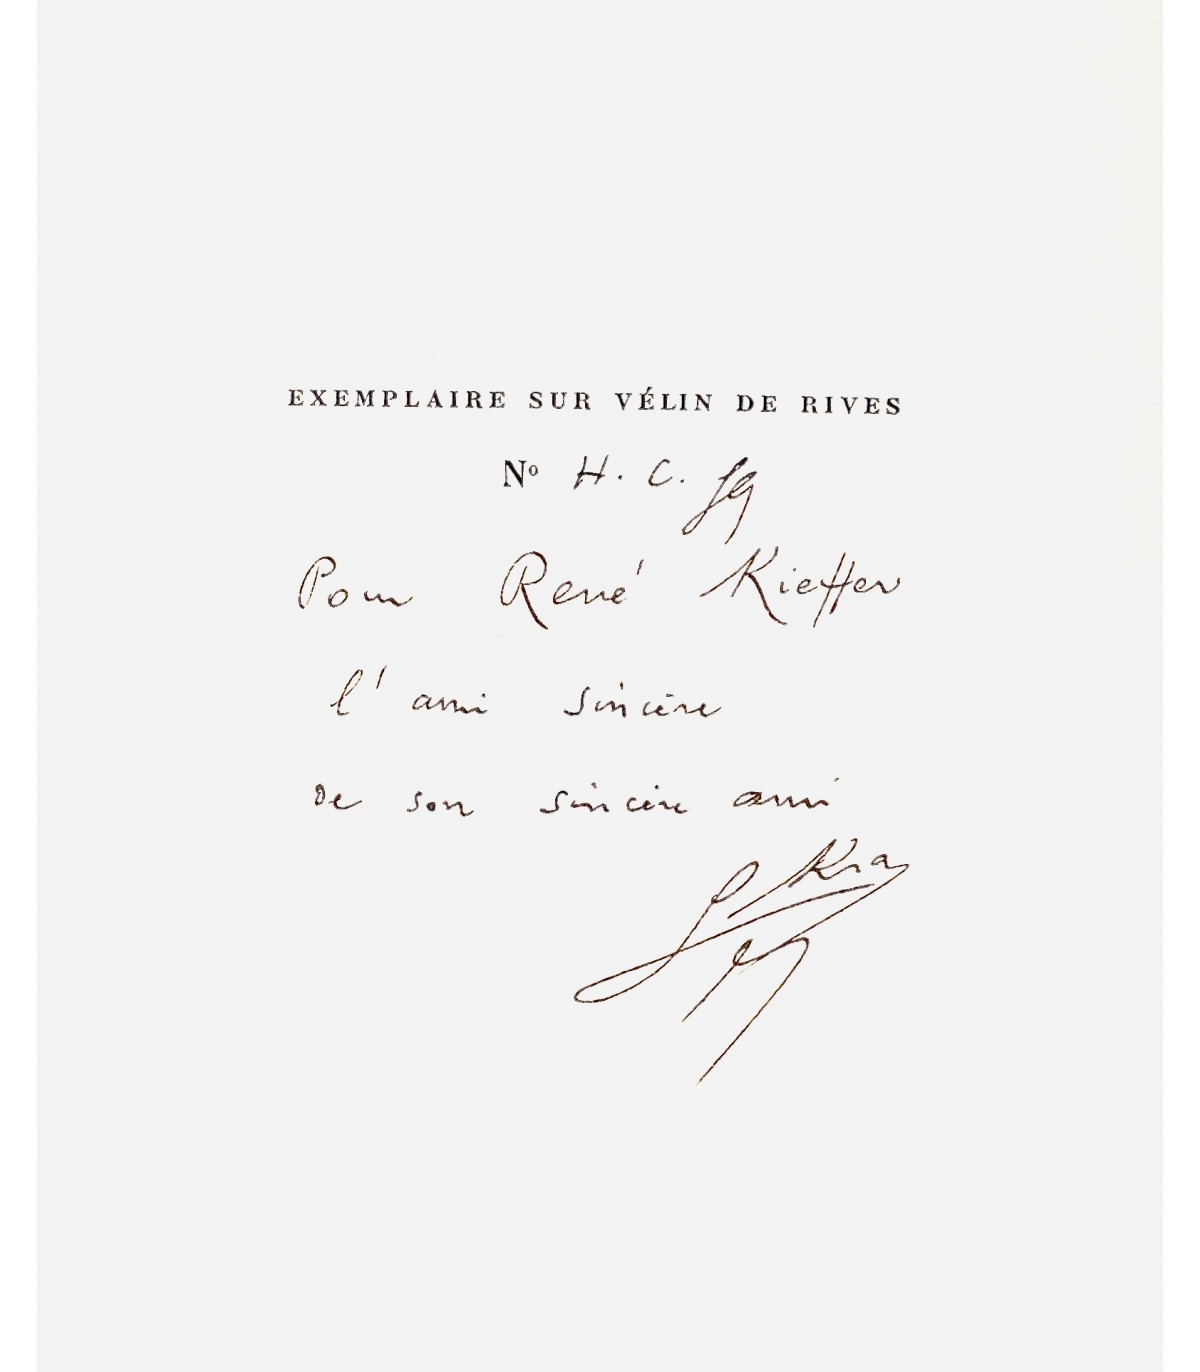 EXEMPLAIRE SUR VÉLIN DE RIVES
Nº H. C.
Pour René Kieffer
l'ami sincère
de son sincère ami
Kra